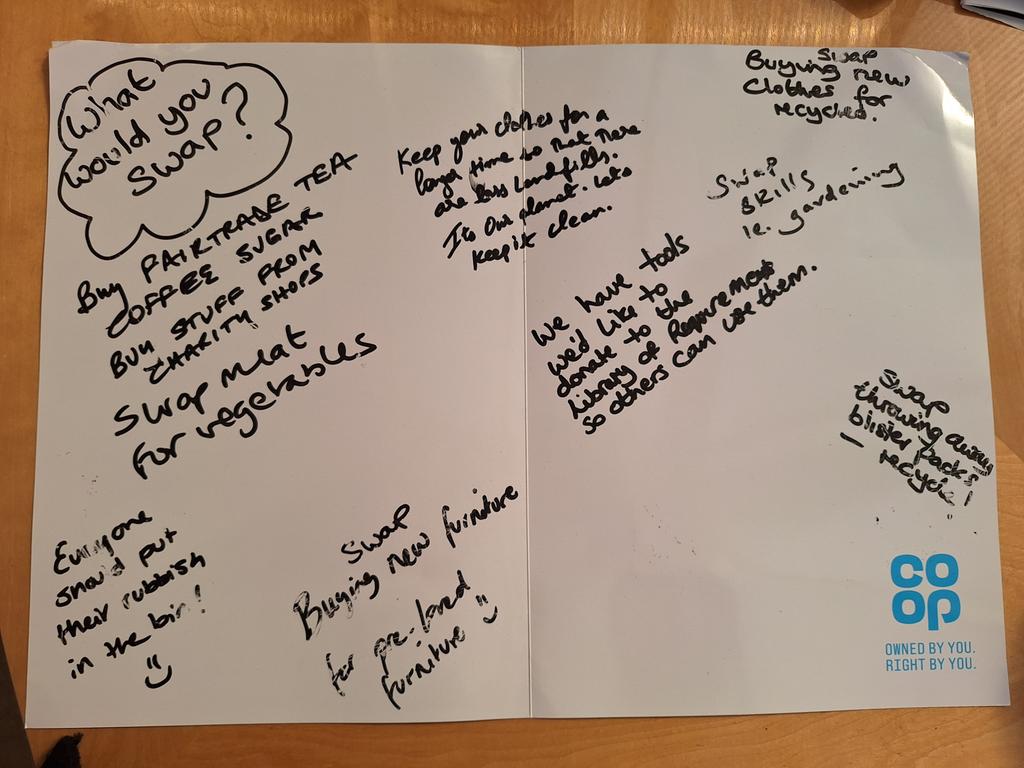 What
would you
swap?
Buy FAIRTRADE TEA
COFFEE SUGAR
BUY STUFF FROM
CHARITY SHOPS
Swap meat
for vegetables
Everyone
should put
their rubbish
in the bin!
Swap
Buying new furniture
for pre-loved
furniture
Keep your clothes for a
longer time so that there
are less landfills.
Its Our planet. Lets
keep it clean.
Swap
Buying new
Clothes for
recycled.
Swap
skills
ie. gardening
We have tools
we'd like to
donate to the
Library of Requirement
so others can use them.
Swap
throwing away
blister packs
– recycle!
CO
OP
OWNED BY YOU.
RIGHT BY YOU.